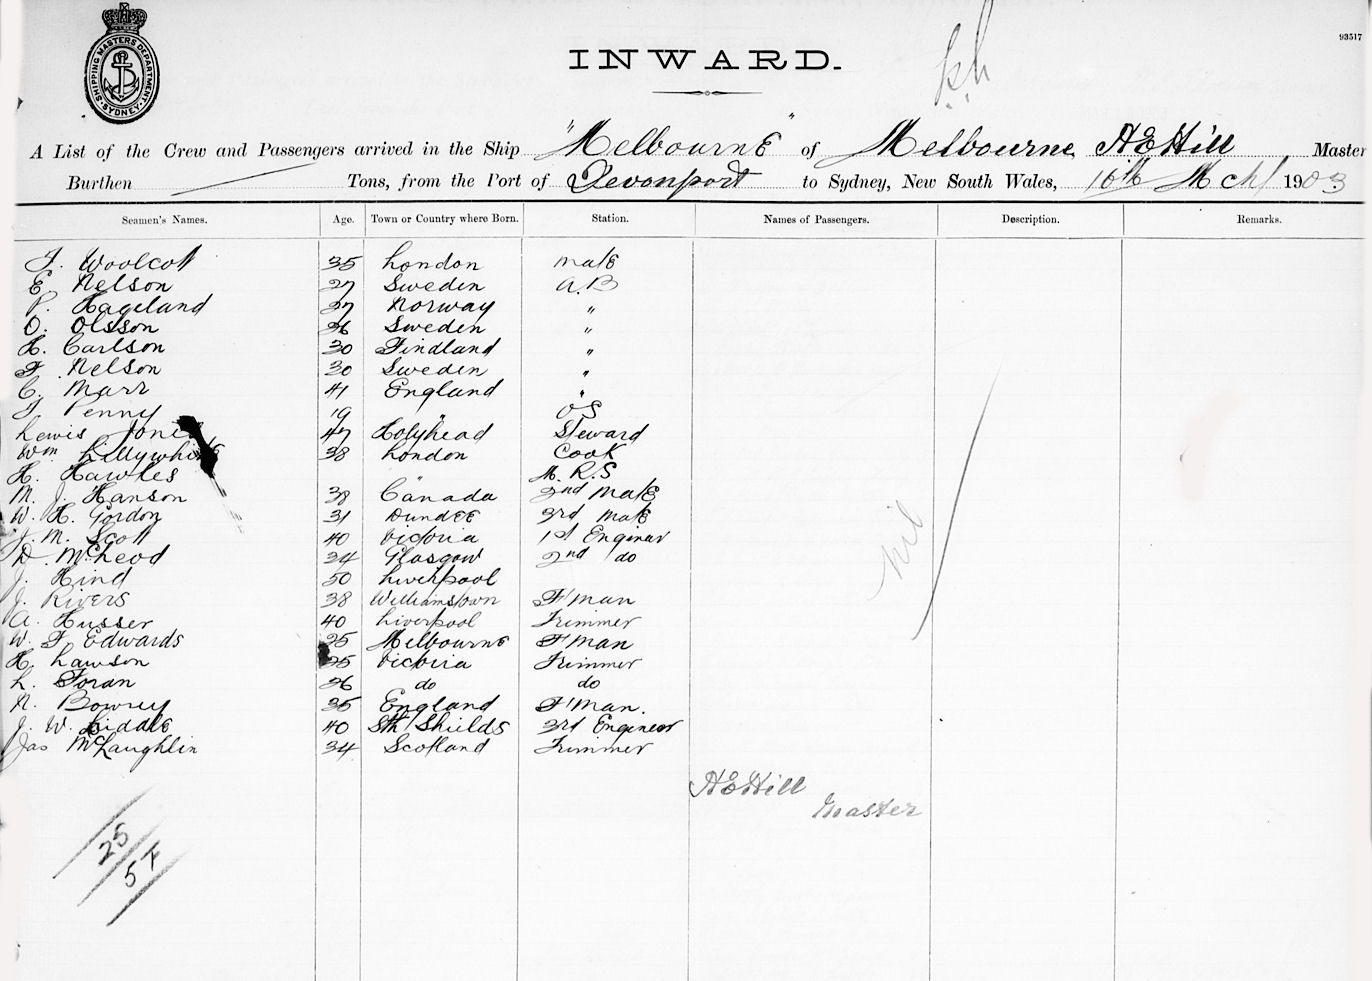 93517
SHIPPING MASTERS DEPARTMENT. SYDNEY
INWARD.
A List of the Crew and Passengers arrived in the Ship "Melbourne" of Melbourne A E Hill Master
Burthen Tons, from the Port of Devonport to Sydney, New South Wales, 16th Mch/ 1903
Seamen's Names. Age. Town or Country where Born. Station. Names of Passengers. Description. Remarks.
F. Woolcott 35 London Mate
E Nelson 27 Sweden A.B
P. Hageland 27 Norway "
O. Olsson 26 Sweden "
H. Carlson 30 Findland "
F. Nelson 30 Sweden "
C. Marr 41 England "
Penny 19 " O S
Lewis Jones 47 Holyhead Steward
Wm Lillywhite 38 London Cook
H. Hawkes " M. R. S
M. J. Hanson 38 Canada 2nd Mate
W. H. Gordon 31 Dundee 3rd Mate
J. M. Scott 40 Victoria 1st Engineer
D. McLeod 34 Glasgow 2nd do
J. Hind 50 Liverpool
J. Rivers 38 Williamstown F'man
A. Husser 40 Liverpool Trimmer
W. F Edwards 25 Melbourne F'man
H. Lawson 25 Victoria Trimmer
L. Foran 26 do do
N. Bowrey 35 England F'man.
J. W. Liddle 40 Sth Shields 3rd Engineer
Jas McLaughlin 34 Scotland Trimmer
nil
A E Hill
Master
25
5 F